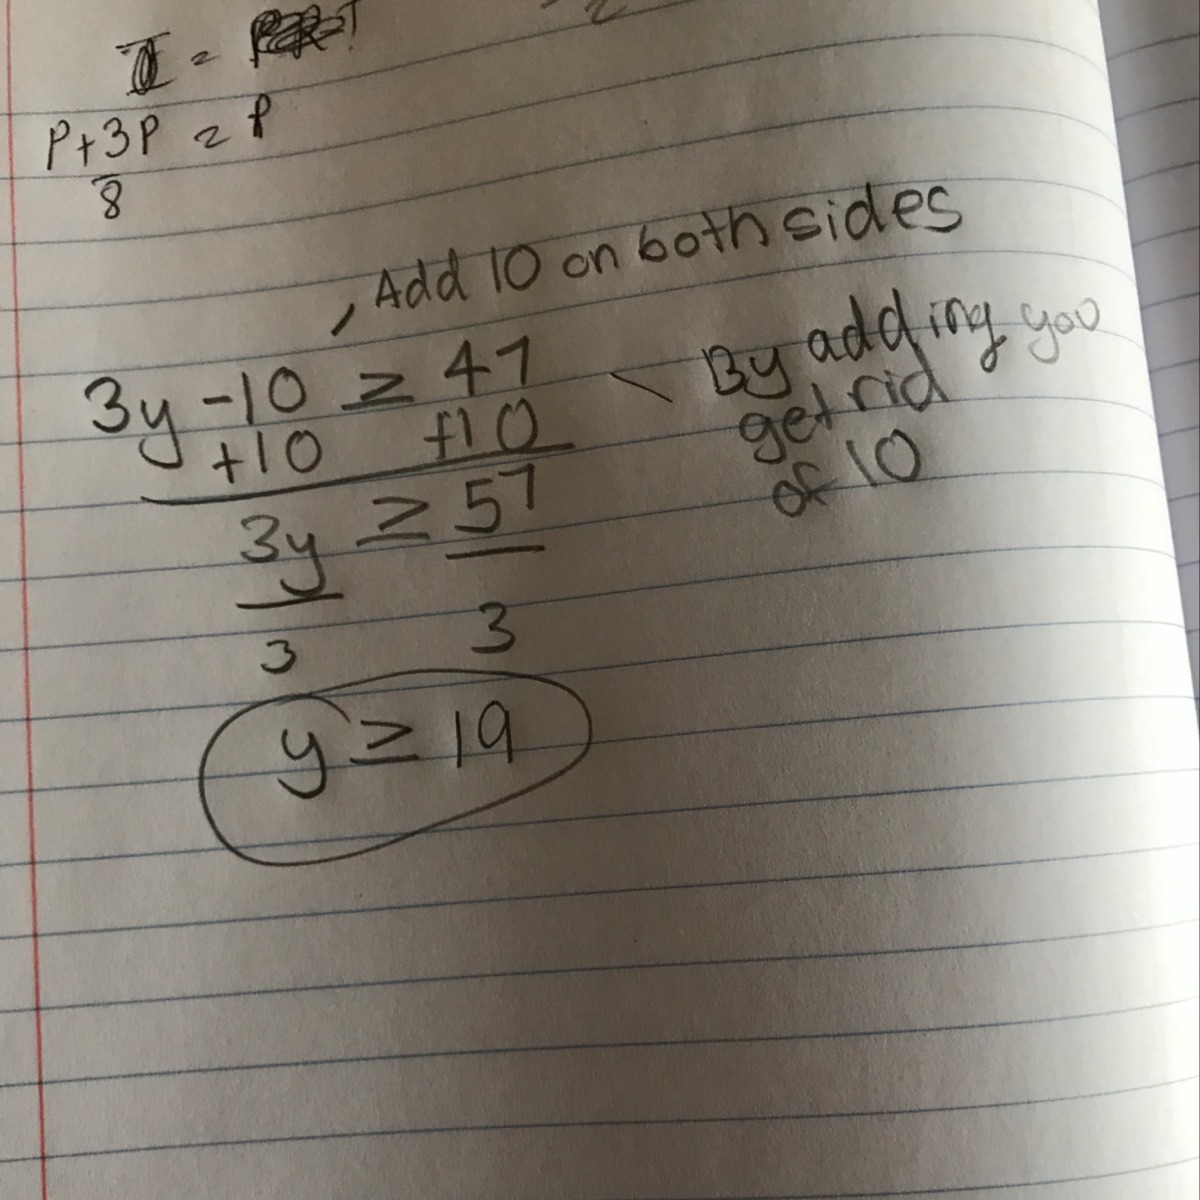 P+3P = P
8
, Add 10 on both sides
3y -10 ≥ 47
+10 +10
By adding you
get rid
of 10
3y ≥ 57
3 3
y ≥ 19